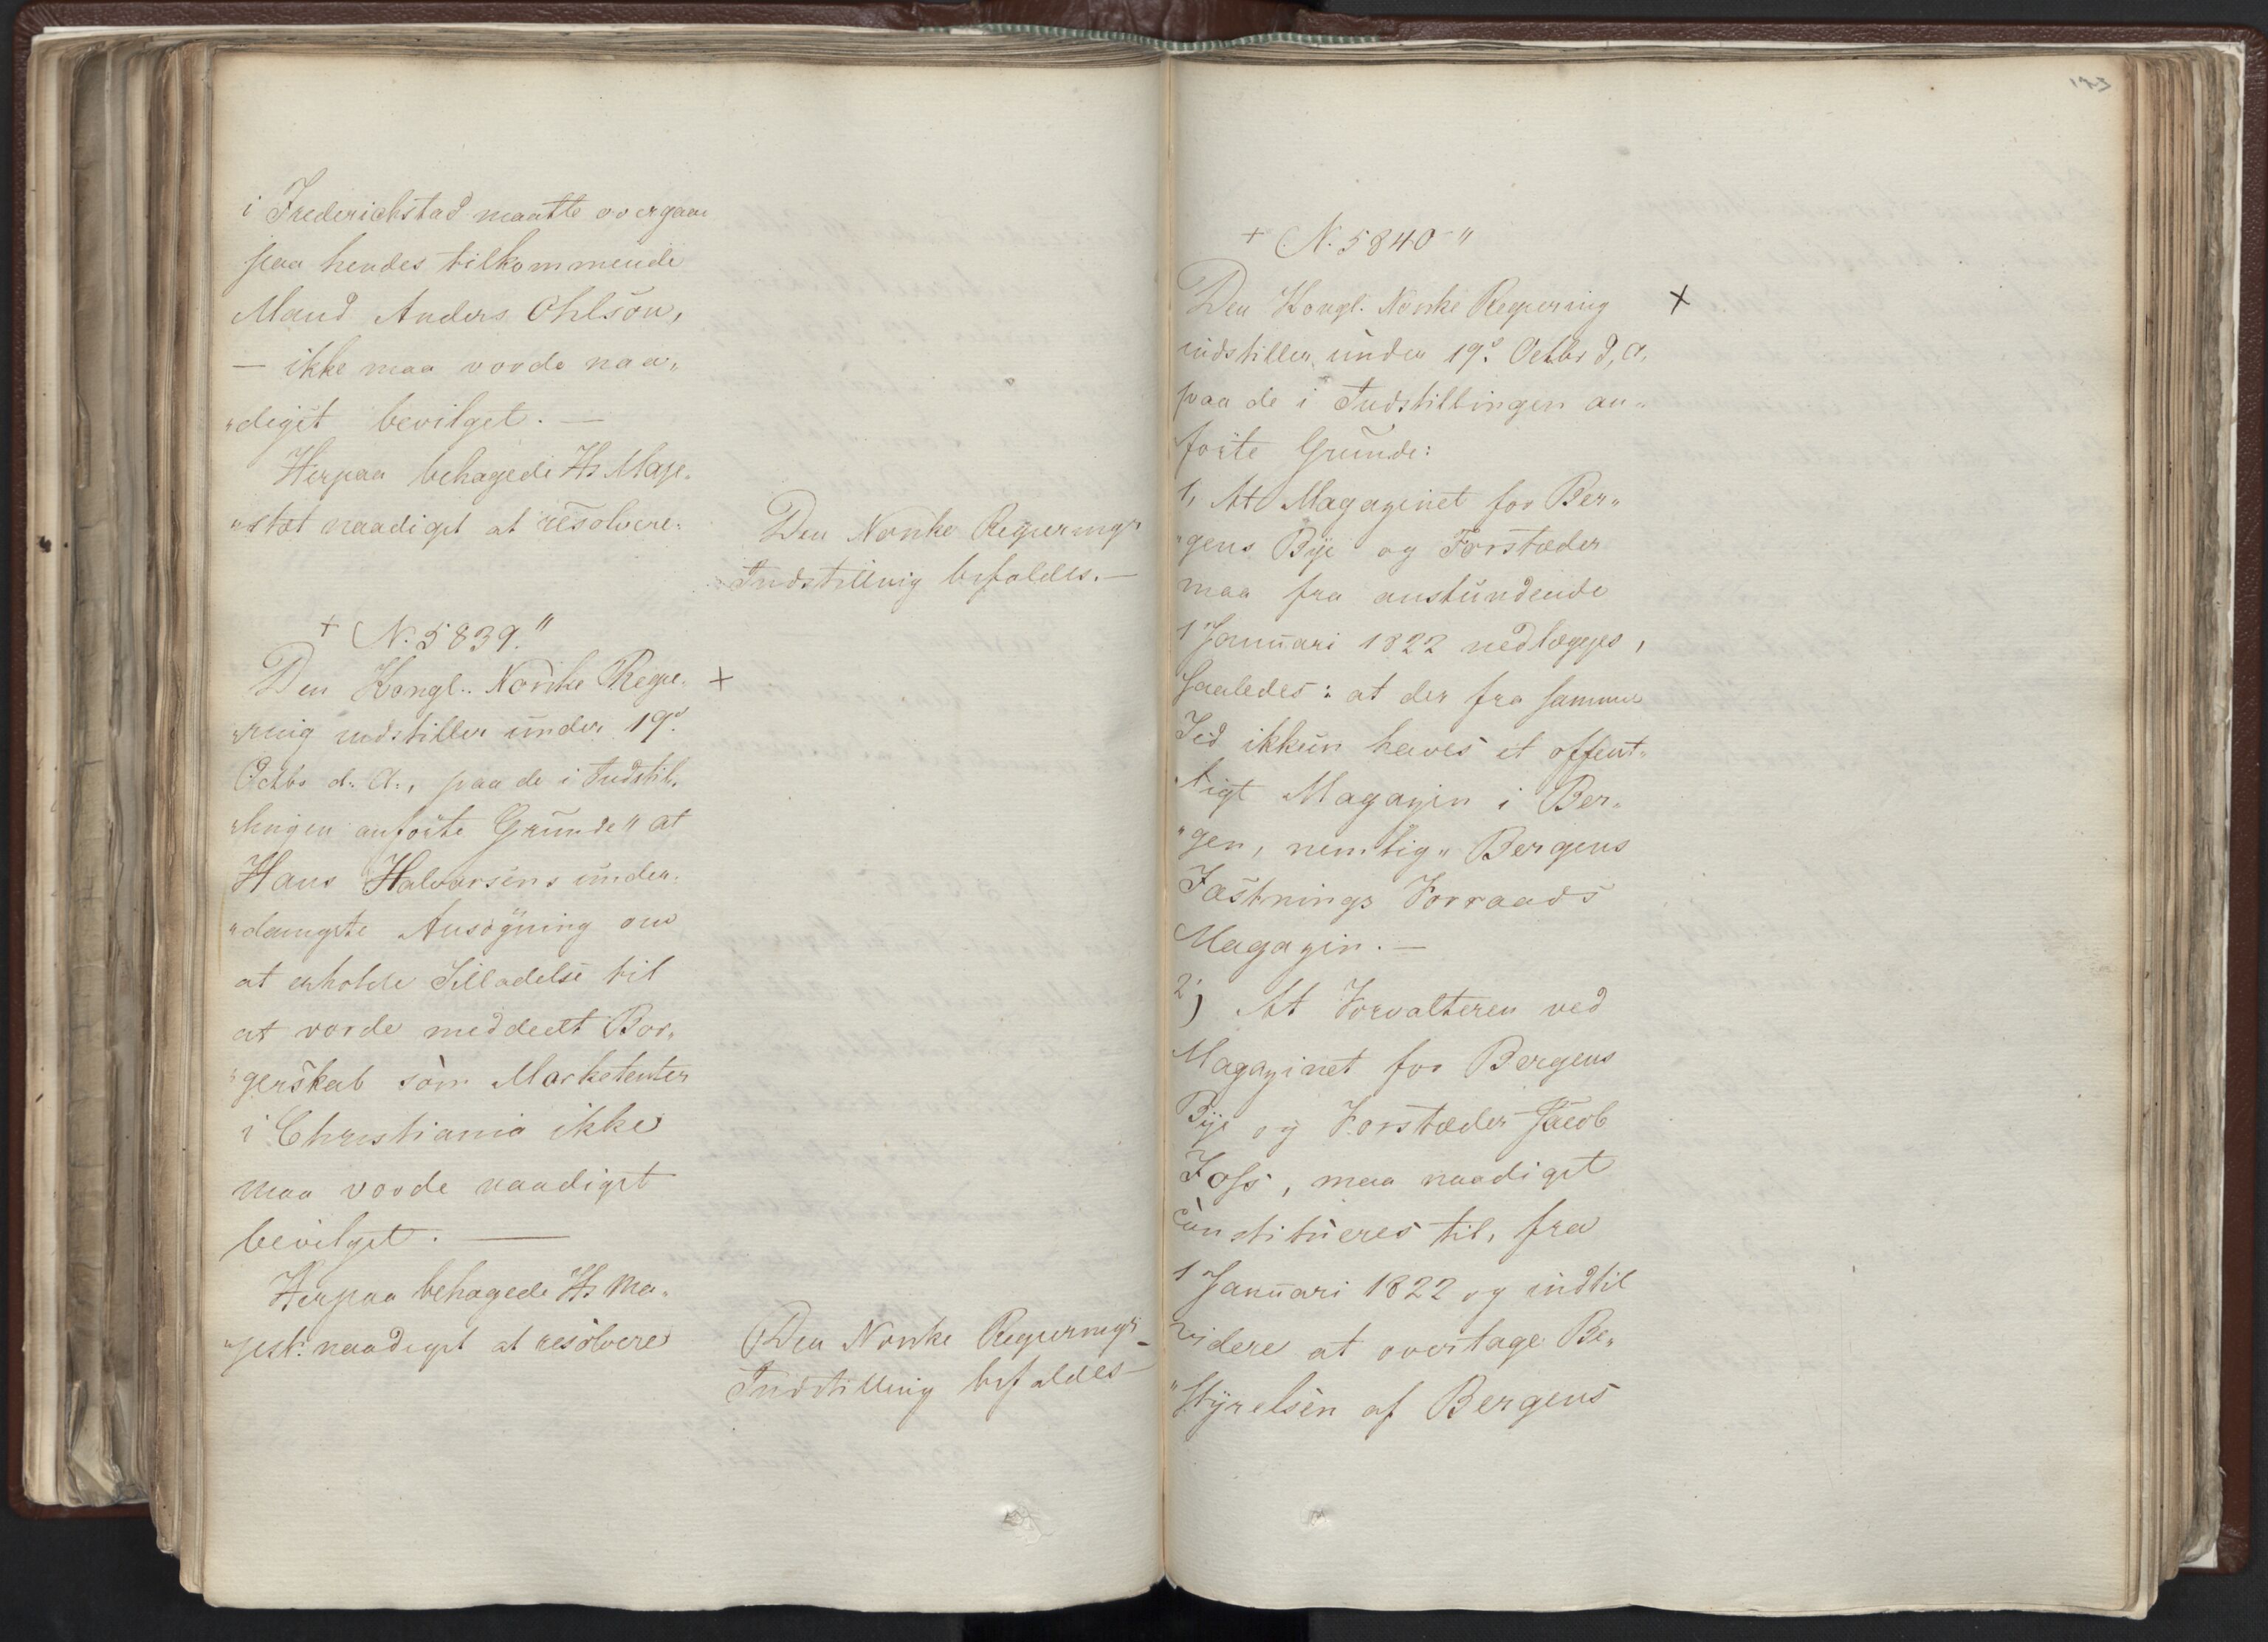 i Frederichstad maatte overgaae
paa hendes tilkommende
Mand Anders Ohlson,
— ikke maa vorde naa„
„digst bevilget. —
Herpaa behagede Hs Maje„
„stæt naadigst at resolvere:
Den Norske Regjerings
Indstilling bifaldes. —
+ N. 5839."
Den Kongl. Norske Regje„ +
„ring indstiller under 19d.
Octbr d: A:, paa de i Indstil„
„lingen anförte Grunde" at
Hans Halvorsens under„
„danigste Ansögning om
at erholde Tilladelse til
at vorde meddeelt Bor„
„gerskab som Marketenter
i Christiania ikke
maa vorde naadigst
bevilget. —
Herpaa behagede Hs Ma„
„jest: naadigst at resolvere
Den Norske Regjerings
Indstilling bifaldes —
183
+ N. 5840"
Den Kongl. Norske Regjering +
indstiller under 19d. Octbr d, A,
paa de i Indstillingen an„
förte Grunde:
1, At Magazinet for Ber„
„gens Bye og Forstæder
maa fra anstundende
1 Januari 1822 nedlægges,
saaledes: at der fra samme
Tid ikkun haves et offent„
„ligt Magazin i Ber„
„gen, nemlig" Bergens
Fæstnings Forraads
Magazin. —
2) At Forvalteren ved
Magazinet for Bergens
Bye og Forstæder Jacob
Foss, maa naadigst
constitueres til, fra
1 Januari 1822 og indtil
videre at overtage Be„
„styrelsen af Bergens